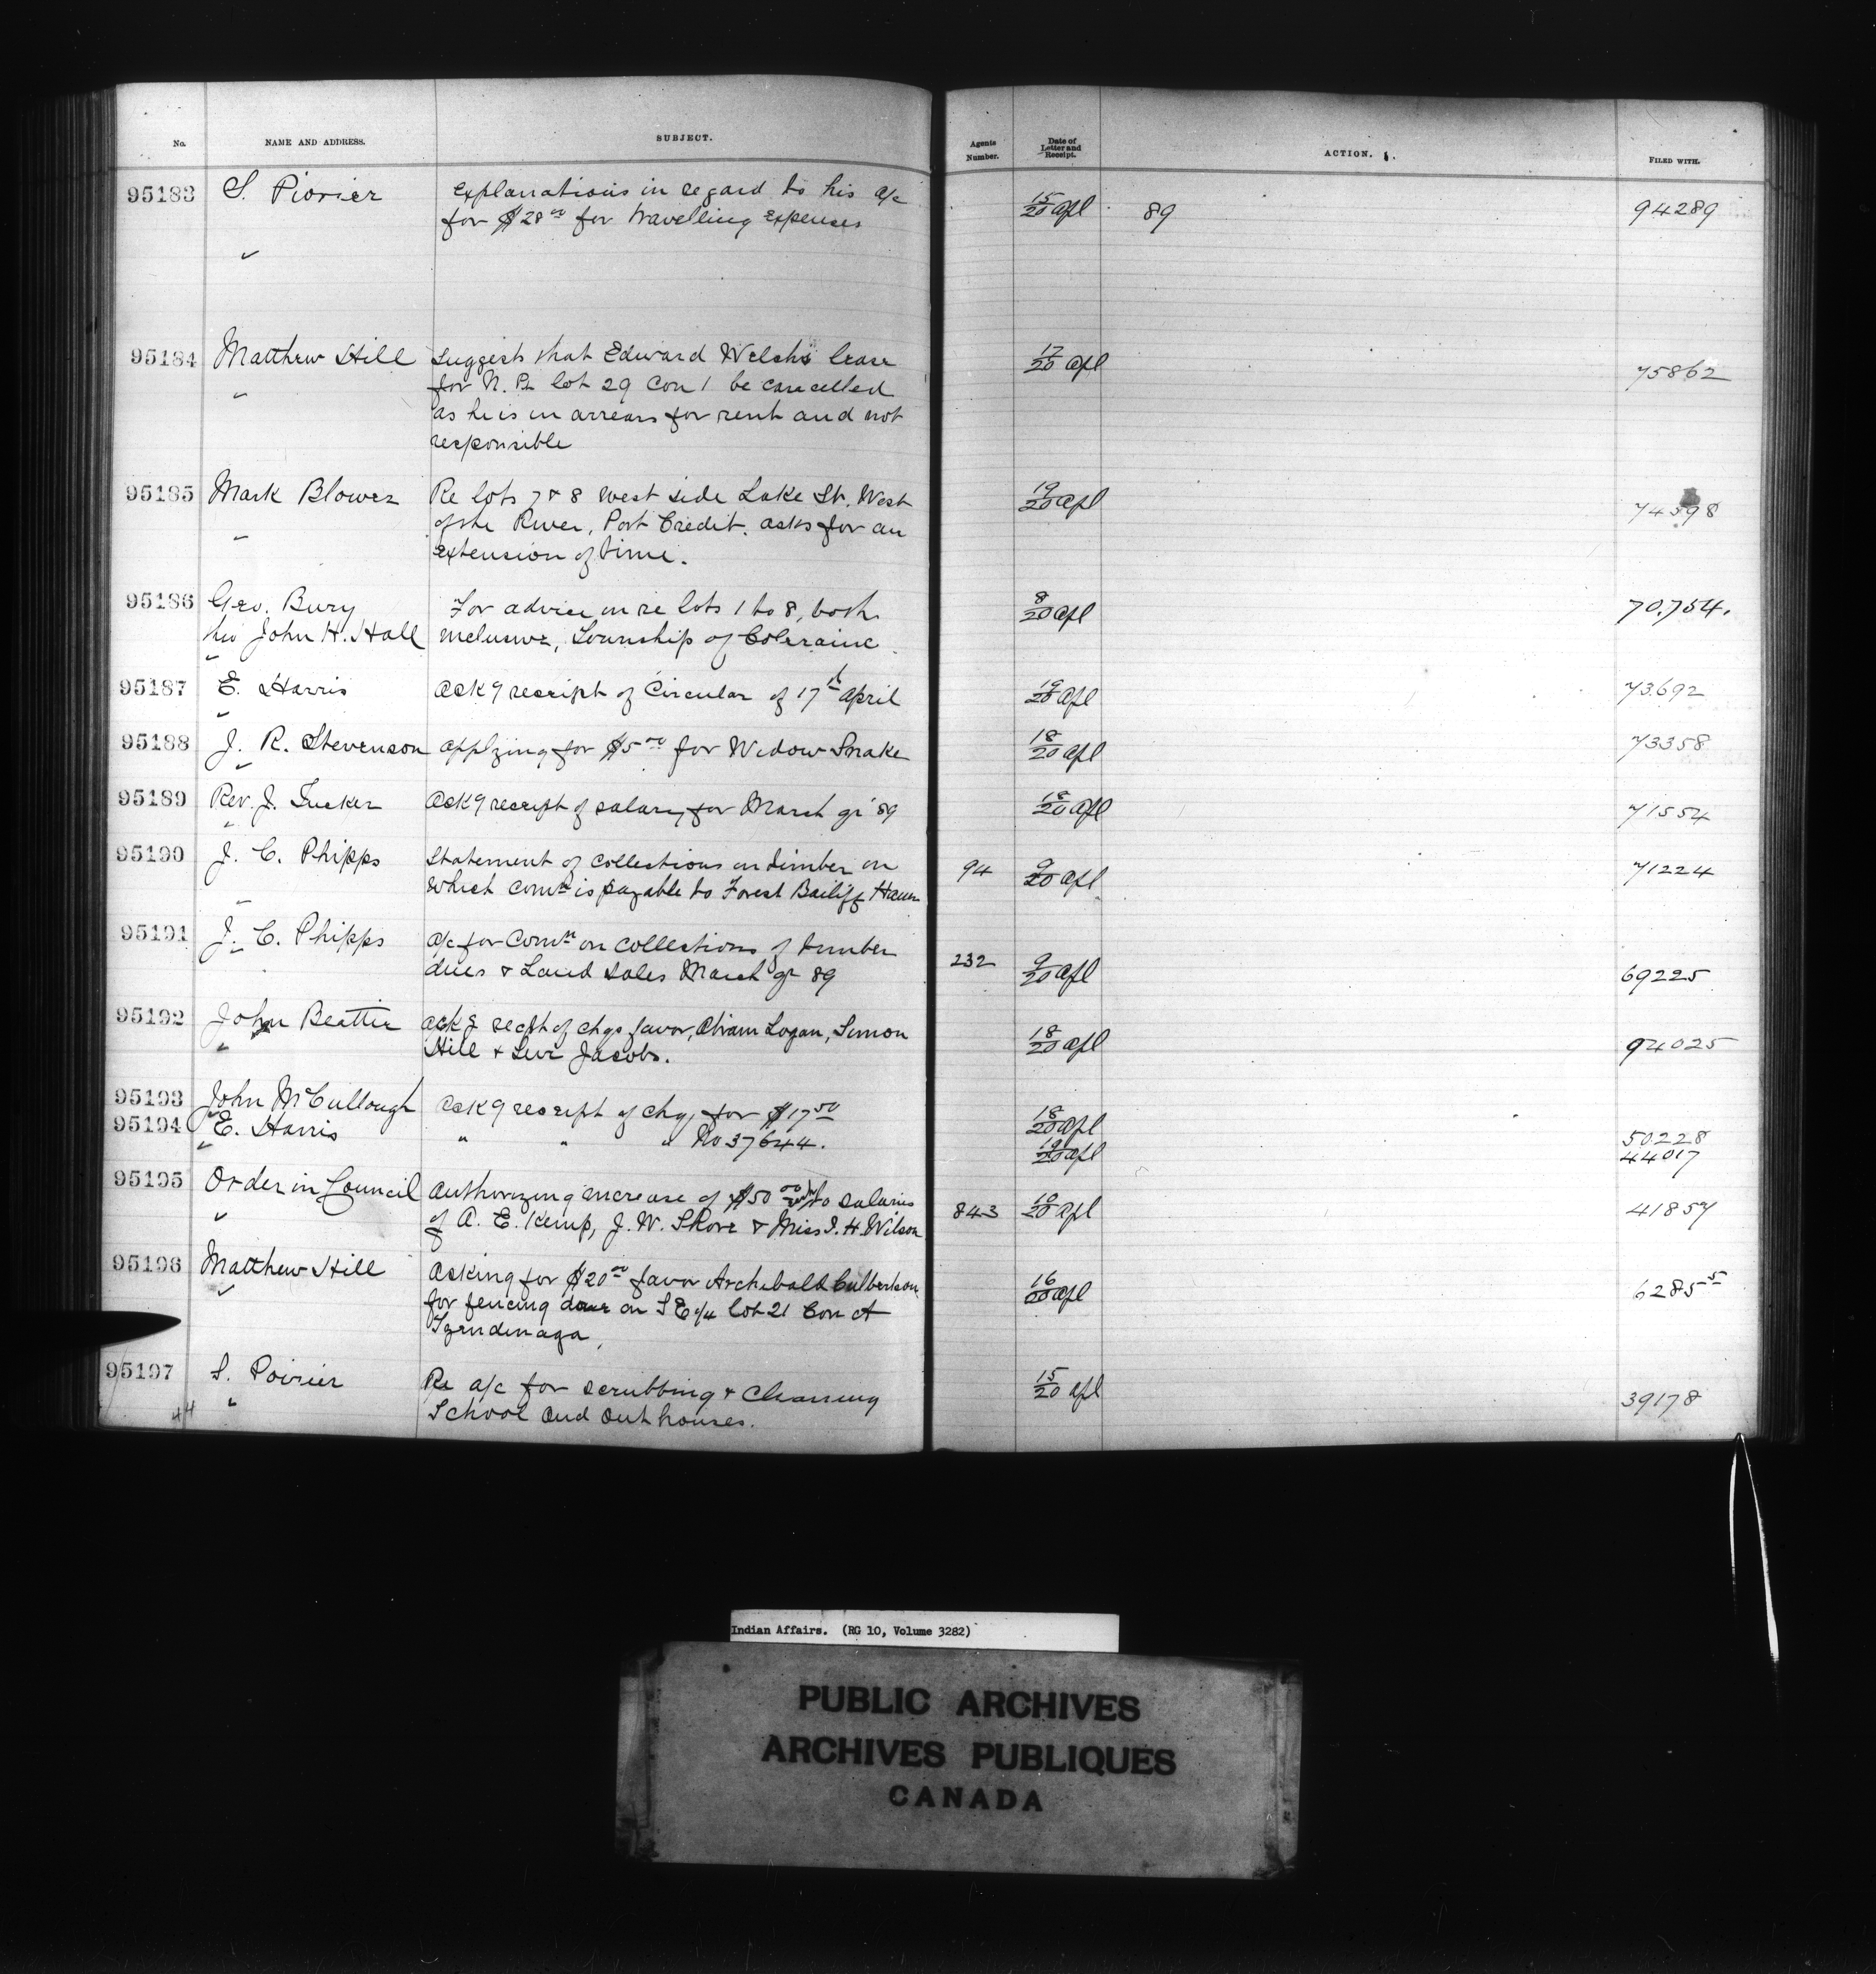 No. NAME AND ADDRESS. SUBJECT. Agents Number. Date of Letter and Receipt. ACTION. FILED WITH.
95183 S. Piovier Explanations in regard to his a/c 15/20 Apl 89 94289
for $28 00 for travelling expenses
"
95184 Matthew Hill Suggests that Edward Welchs lease 17/20 Apl 75862
" for N. Pt lot 29 Con 1 be cancelled
as he is in arrears for rent and not
responsible
95185 Mark Blower Re lots 7 & 8 west side Lake St. West 19/20 Apl 74598
" of the River, Port Credit. asks for an
extension of time.
95186 Geo. Bury For advice in re lots 1 to 8, both 8/20 Apl 70.754.
thro John H. Hall inclusive, Township of Coleraine
"
95187 E. Harris Ack g receipt of Circular of 17th April 19/20 Apl 73692
"
95188 J. R. Stevenson applying for $5 00 for Widow Snake 18/20 Apl 73358
"
95189 Rev. J. Tucker Ack g receipt of salary for March qr '89 18/20 Apl 71554
"
95190 J. C. Phipps Statement of collections on timber on 94 9/20 Apl 71224
" which comn is payable to Forest Bailiff
95191 J. C. Phipps a/c for Comn on collections of timber 232 9/20 Apl 69225
" dues & Land Sales March qr 89
95192 John Beattie ack g recpt of chqs favor, Abram Logan, Simon 18/20 Apl 94025
" Hill & Levi Jacobs.
95193 John McCullough Ack g receipt of chq for $17 50 18/20 Apl 50228
95194 " E. Harris " " " No 37644. 19/20 Apl 44017
"
95195 Order in Council Authorizing increase of $50 00 each to salaries 843 10/20 Apl 41857
" of A. E. Kemp, J. W. Shore & Miss I. H. Wilson
95196 Matthew Hill Asking for $20 00 favor Archibald Culbertson 16/20 Apl 62855
" for fencing done on S E 1/4 lot 21 Con A
Tyendinaga
95197 S. Poirier Re a/c for scrubbing & cleaning 15/20 Apl 39178
44 " School and Outhouses.
Indian Affairs. (RG 10, Volume 3282)
PUBLIC ARCHIVES
ARCHIVES PUBLIQUES
CANADA